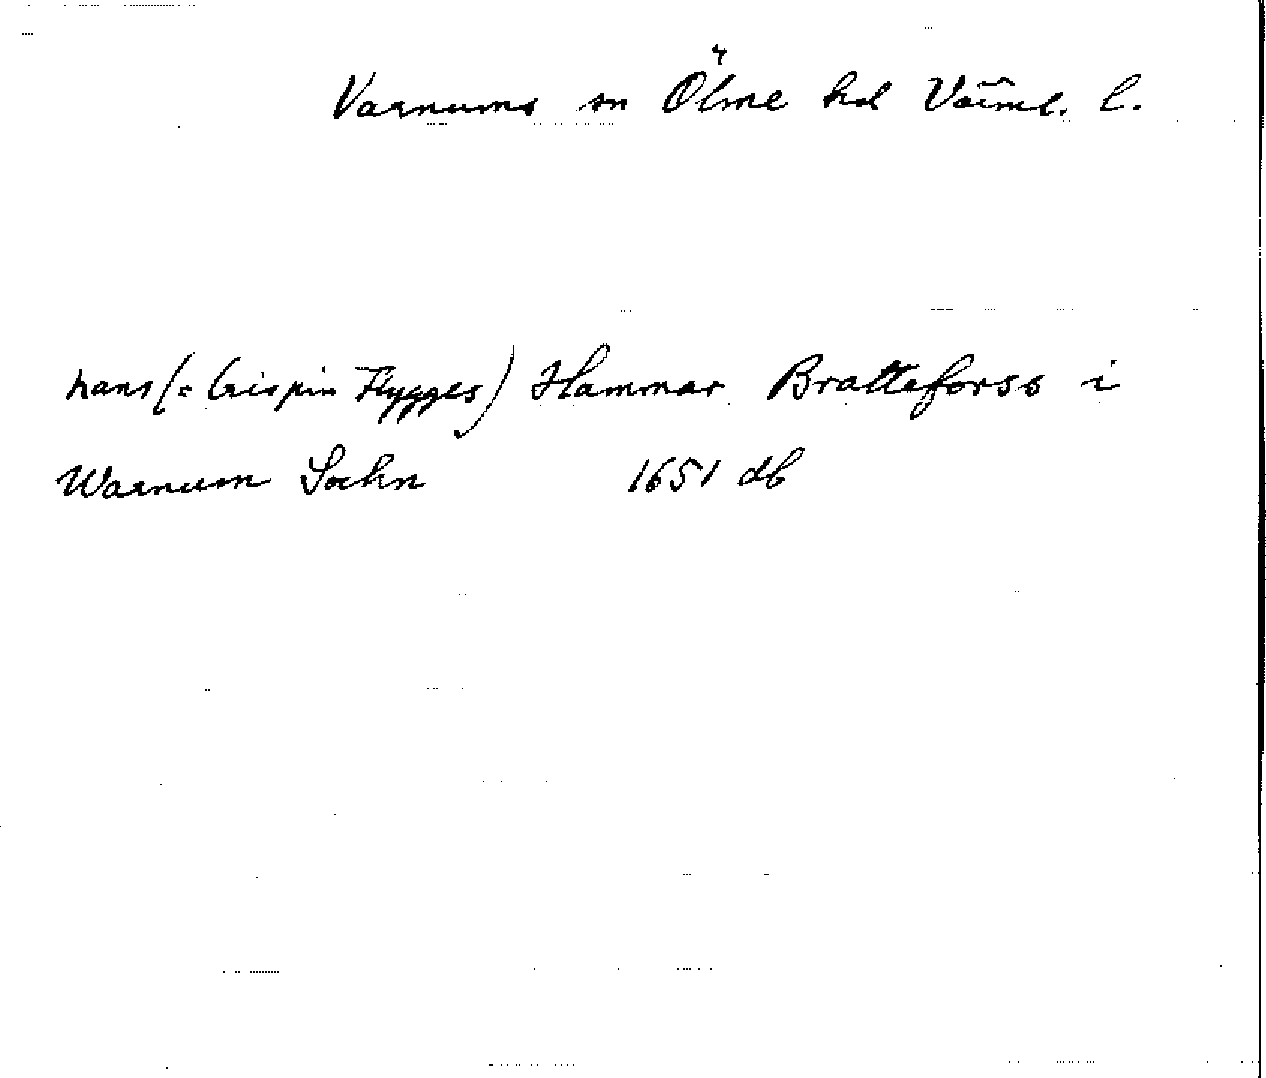 Varnums sn Ölme hd Värml. l.
hans (= Crispin Flygges) Hammar Bratteforss i
Warnum Sochn 1651 db